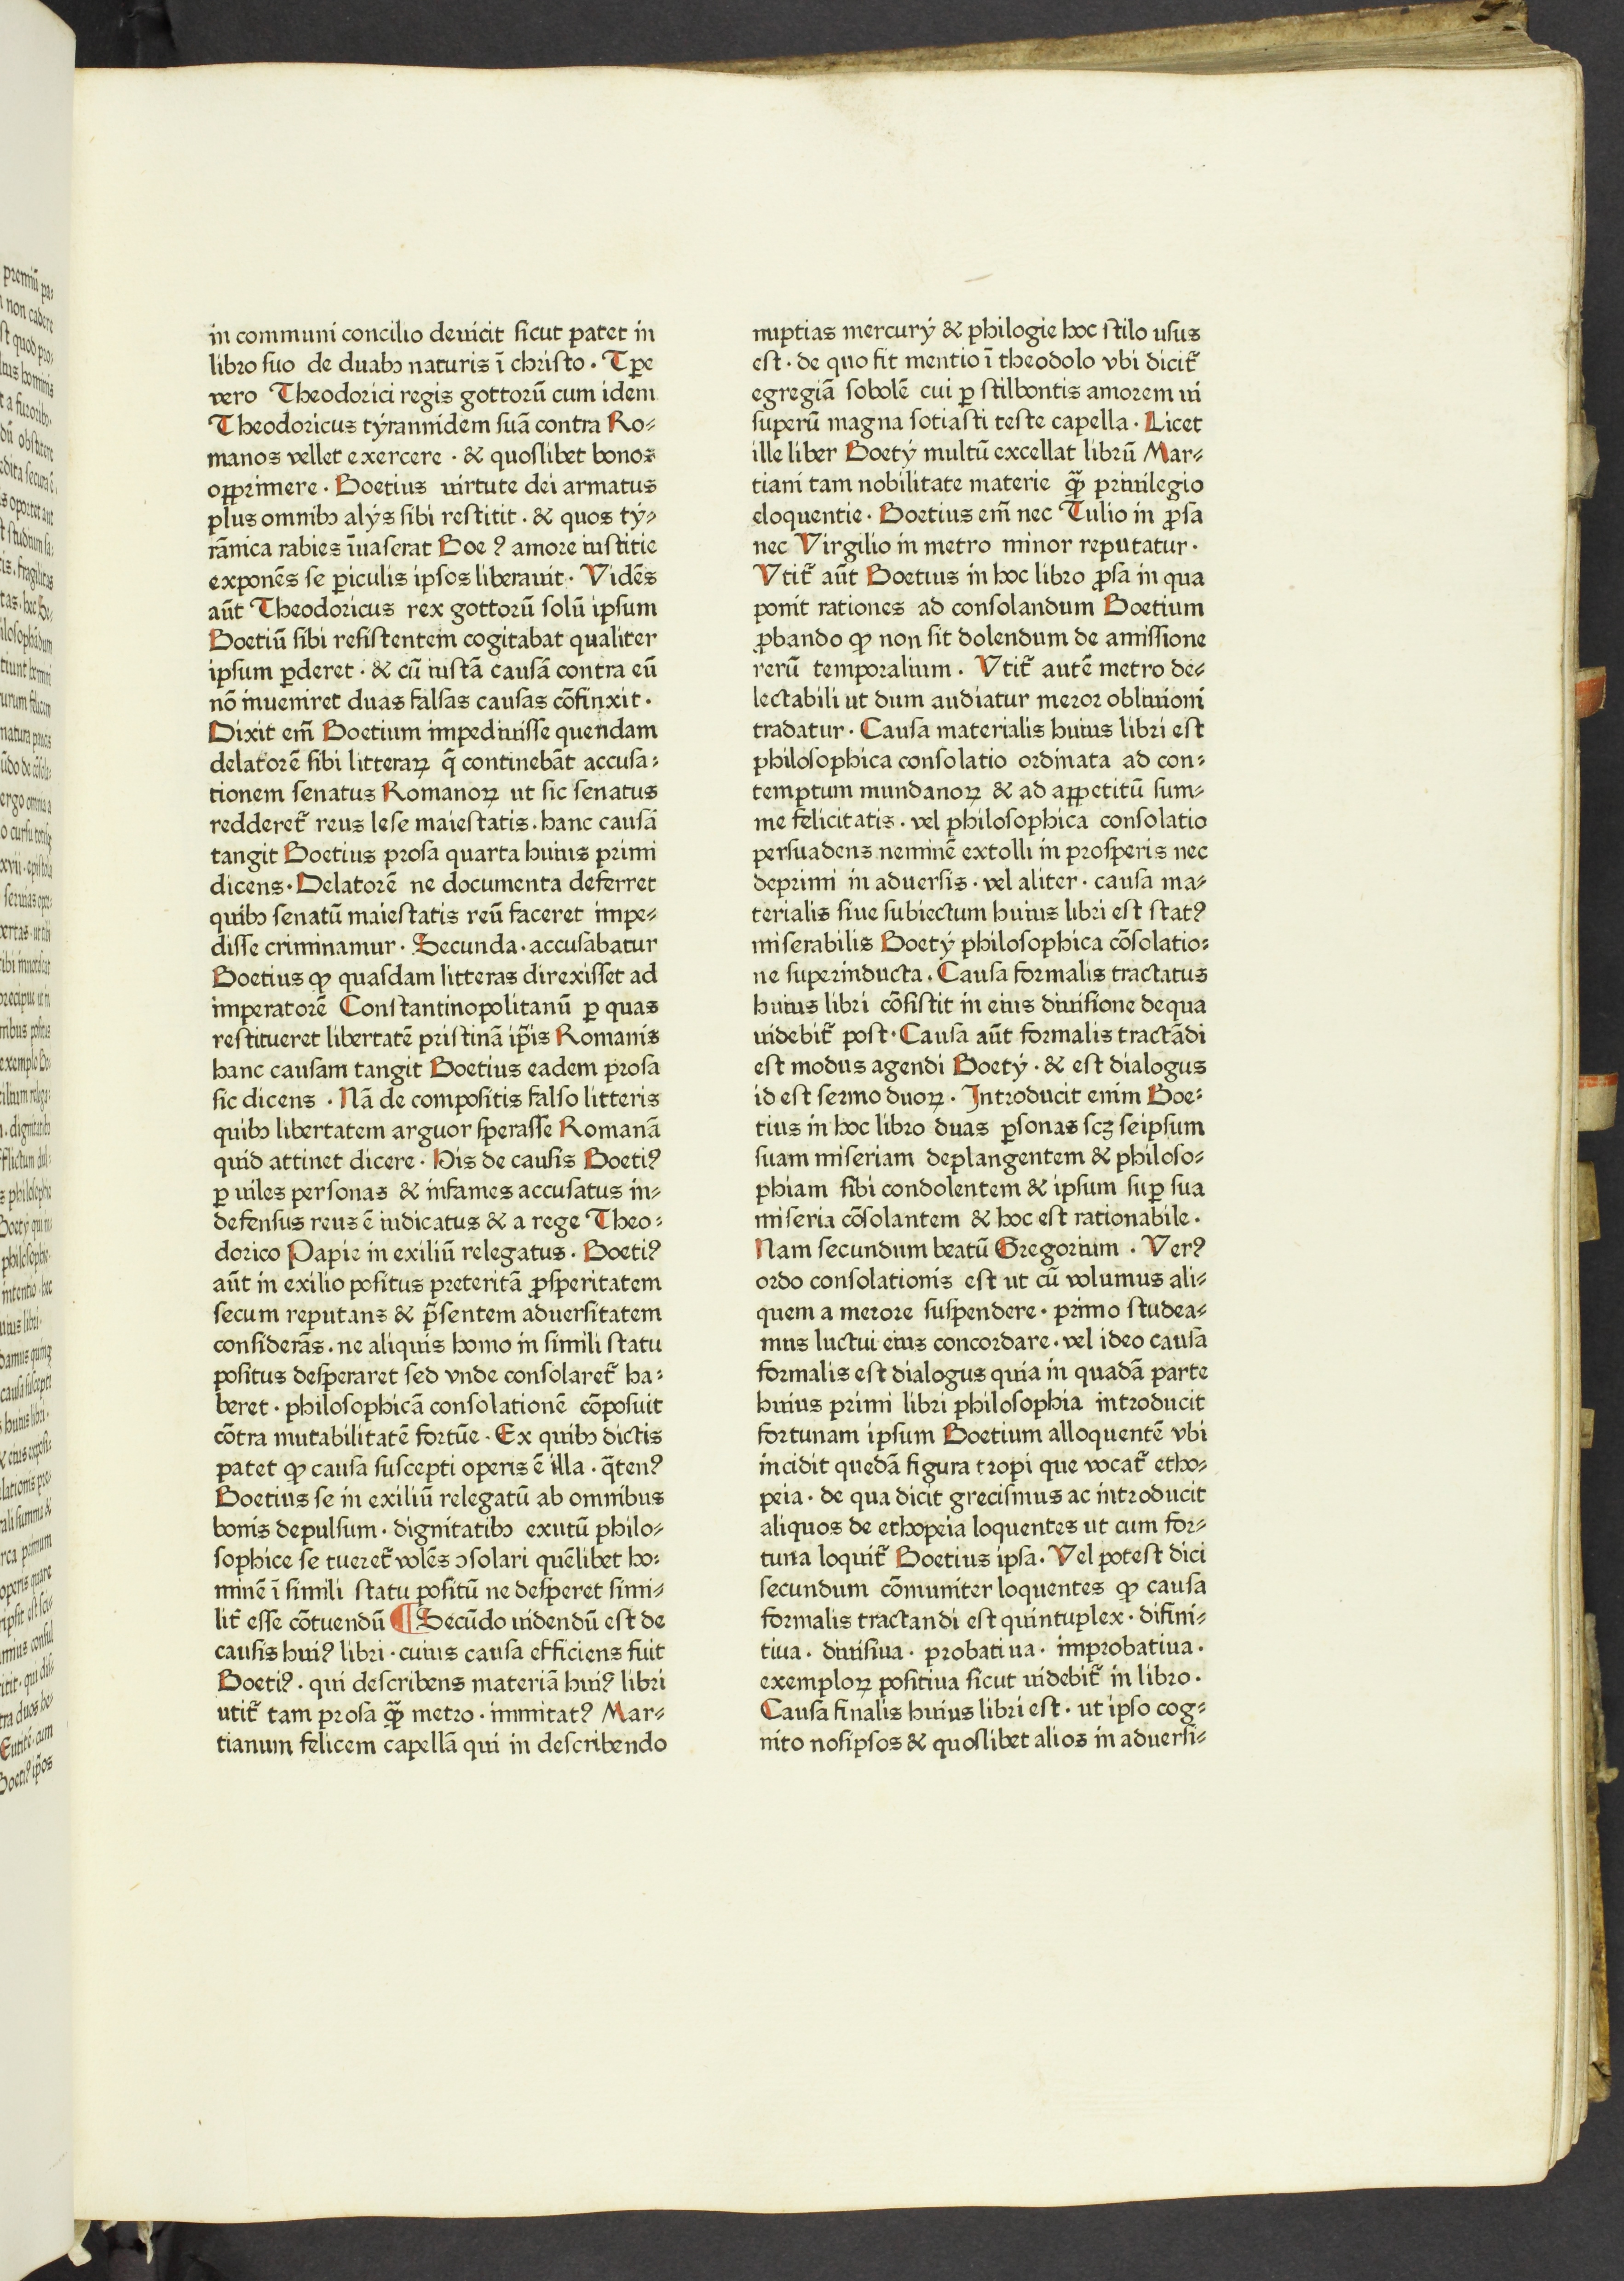 in communi concilio deuicit sicut patet in
libro suo de duabꝫ naturis ī christo · Tꝑe
vero Theodorici regis gottorū cum idem
Theodoricus tyrannidem suā contra Ro-
manos vellet exercere · & quoslibet bonos
opprimere · Boetius uirtute dei armatus
plus omnibꝫ alijs sibi restitit · & quos ty-
rānica rabies īuaserat Boeꝰ amore iustitie
exponēs se ꝑiculis ipsos liberauit · Vidēs
aūt Theodoricus rex gottorū solū ipsum
Boetiū sibi resistentem cogitabat qualiter
ipsum ꝑderet · & cū iustā causā contra eū
nō inueniret duas falsas causas cōfinxit ·
Dixit em̄ Boetium impediuisse quendam
delatorē sibi litteraꝝ q̄ continebāt accusa-
tionem senatus Romanoꝝ ut sic senatus
redderet᷑ reus lese maiestatis · hanc causā
tangit Boetius prosa quarta huius primi
dicens · Delatorē ne documenta deferret
quibꝫ senatū maiestatis reū faceret impe-
disse criminamur · Secunda · accusabatur
Boetius ꝙ quasdam litteras direxisset ad
imperatorē Constantinopolitanū ꝑ quas
restitueret libertatē pristinā ip̄is Romanis
hanc causam tangit Boetius eadem prosa
sic dicens · Nā de compositis falso litteris
quibꝫ libertatem arguor sperasse Romanā
quid attinet dicere · His de causis Boetiꝰ
ꝑ uiles personas & infames accusatus in-
defensus reus ē iudicatus & a rege Theo-
dorico Papie in exiliū relegatus · Boetiꝰ
aūt in exilio positus preteritā ꝓsperitatem
secum reputans & p̄sentem aduersitatem
considerās · ne aliquis homo in simili statu
positus desperaret sed vnde consolaret᷑ ha-
beret · philosophicā consolationē cōposuit
cōtra mutabilitatē fortūe · Ex quibꝫ dictis
patet ꝙ causa suscepti operis ē illa · q̄tenꝰ
Boetius se in exiliū relegatū ab omnibus
bonis depulsum · dignitatibꝫ exutū philo-
sophice se tueret᷑ volēs ꝯsolari quēlibet ho-
minē ī simili statu positū ne desperet simi-
lit᷑ esse cōtuendū ¶ Secūdo uidendū est de
causis huiꝰ libri · cuius causa efficiens fuit
Boetiꝰ · qui describens materiā huiꝰ libri
utit᷑ tam prosa q̄ꝫ metro · immitatꝰ Mar-
tianum felicem capellā qui in describendo
nuptias mercurij & philogie hoc stilo usus
est · de quo fit mentio ī theodolo vbi dicit᷑
egregiā sobolē cui ꝑ stilbontis amorem ui
superū magna sotiasti teste capella · Licet
ille liber Boetij multū excellat librū Mar-
tiani tam nobilitate materie q̄ꝫ priuilegio
eloquentie · Boetius em̄ nec Tulio in ꝓsa
nec Virgilio in metro minor reputatur ·
Vtit᷑ aūt Boetius in hoc libro ꝓsa in qua
ponit rationes ad consolandum Boetium
ꝓbando ꝙ non sit dolendum de amissione
rerū temporalium · Vtit᷑ autē metro de-
lectabili ut dum audiatur meror obliuioni
tradatur · Causa materialis huius libri est
philosophica consolatio ordinata ad con-
temptum mundanoꝝ & ad appetitū sum-
me felicitatis · vel philosophica consolatio
persuadens neminē extolli in prosperis nec
deprimi in aduersis · vel aliter · causa ma-
terialis siue subiectum huius libri est statꝰ
miserabilis Boetij philosophica cōsolatio-
ne superinducta · Causa formalis tractatus
huius libri cōsistit in eius diuisione de qua
uidebit᷑ post · Causa aūt formalis tractādi
est modus agendi Boetij · & est dialogus
id est sermo duoꝝ · Introducit enim Boe-
tius in hoc libro duas ꝑsonas scꝫ seipsum
suam miseriam deplangentem & philoso-
phiam sibi condolentem & ipsum suꝑ sua
miseria cōsolantem & hoc est rationabile ·
Nam secundum beatū Gregorium · Verꝰ
ordo consolationis est ut cū volumus ali-
quem a merore suspendere · primo studea-
mus luctui eius concordare · vel ideo causa
formalis est dialogus quia in quadā parte
huius primi libri philosophia introducit
fortunam ipsum Boetium alloquentē vbi
incidit quedā figura tropi que vocat᷑ etho-
peia · de qua dicit grecismus ac introducit
aliquos de ethopeia loquentes ut cum for-
tuna loquit᷑ Boetius ipsa · Vel potest dici
secundum cōmuniter loquentes ꝙ causa
formalis tractandi est quintuplex · difini-
tiua · diuisiua · probatiua · improbatiua ·
exemploꝝ positiua sicut uidebit᷑ in libro ·
Causa finalis huius libri est · ut ipso cog-
nito nosipsos & quoslibet alios in aduersi-